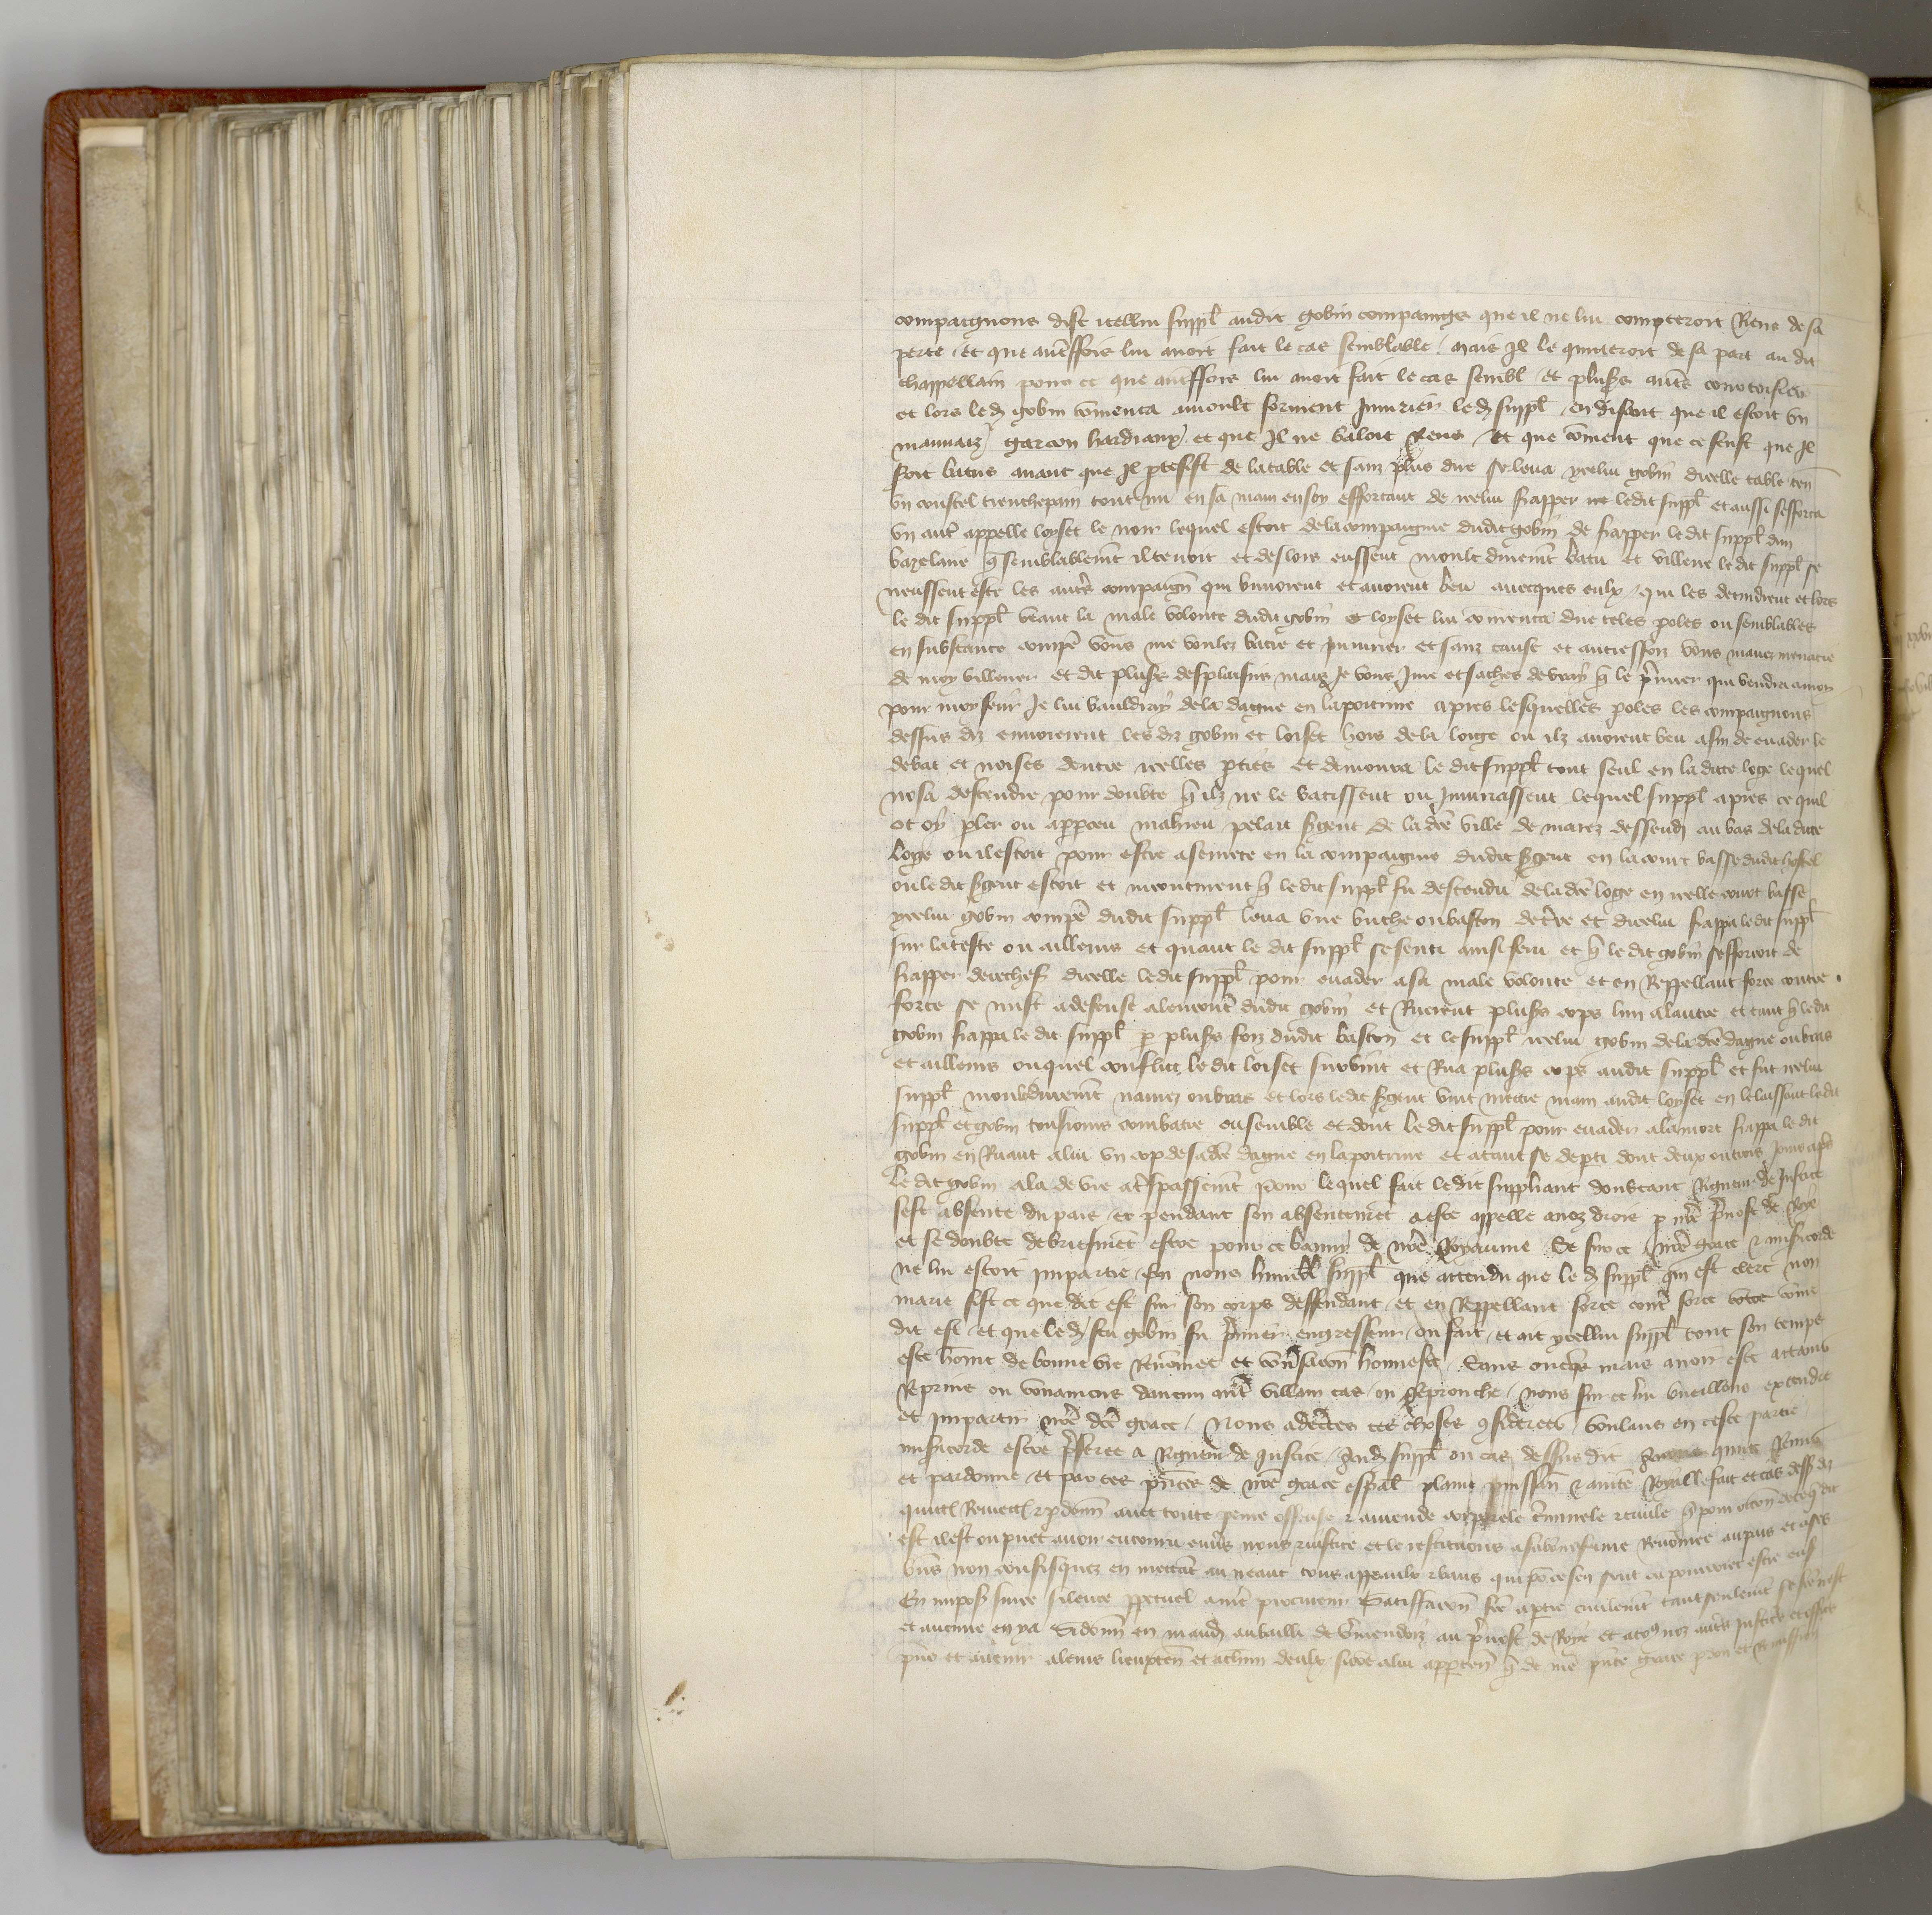 compaignons dist icellui suppl audit gobin compaings que il ne lui compteroit Riens de sa
perte / et que autreffois lui avoit fait le cas semblable / mais Il le quitteroit de sa part au dit
chappellain pour ce que autreffois lui avoit fait le cas sembl et plus autres
et lors led gobin comenca moult forment Injurier led suppl en disant que il estoit un
mauvaiz garcon hardiaux et que Il ne valoit Rens et que coment que ce feust que Il
soit batus avant que Il de la table et sanz plus dire se leva ycelui gobin dicelle table ten
un coustel trenchepain tout nu en sa main en soy efforcant de icelui frapper ledit suppl et aussi sefforca
un autre appelle loyset le noir lequel estoit de la compaignie dudit gobin de frapper ledit suppl dun
bazelaire q semblablemt il tenoit et deslors eussent moult duremt batu et villene ledit suppl se
neussent este les autres compaign qui buvoient et avoient beu avecques eulx / qui les detindrent et lors
le dit suppl veant la male volonte dudit gobin et loyset lui comenca dire teles poles ou semblables
en substance comper vous me voulez batre et Injurier et sanz cause et autreffoiz vous mavez menacie
de moy villener et dit plus desplaisirs mais Je vous Jure et saches de vray q le prmier qui vendra a moy
pour moy ferir Je lui bauldray de la dague en la poitrine apres lesquelles poles les compaignons
dessus diz envoierent les diz gobin et loiset hors de la loige ou ilz avoient beu afin de evader le
debat et noises dentre icelles pties et demoura le dit suppl tout seul en la dicte loge lequel
nosa descendre pour doubte q ilz ne le batissent ou Injuriassent lequel suppl apres ce quil
ot oy pler ou appceu mahieu pelart sgent de la dce ville de marez dessend au bas de la dicte
loge ou il estoit pour estre a seurete en la compaignie dudit sgent en la court basse dudit hostel
ou le dit sgent estoit et incontinent q le dit suppl fu descendu de la dce loge en icelle court basse
ycelui gobin comper dudit suppl leva une buche ou baston de tre et dicelui frappa ledit suppl
sur la teste ou ailleurs et quant le dit suppl se senti ainsi feru et q le dit gobin sefforcoit de
frapper derechief dicelle ledit suppl pour evader a sa male volonte et en Reppellant force contre
force se mist a defense a lencontre dudit gobin et Ruerent plus cops lun a lautre et tant q ledit
gobin frappa le dit suppl p plus foiz dudit baston et le suppl icelui gobin de la dce dague ou bras
et ailleurs ouquel conflict le dit loiset survint et Rua plus cops audit suppl et fut icelui
suppl moult duremt navrez ou bras et lors ledit sgent vint mettre main audit loyset en delaissant ledit
suppl et gobin tousiours combatre ensemble et dont le dit suppl pour evader a la mort frappa le dit
gobin en Ruant a lui un cop de sa dce dague en la poitrine et atant se depti dont deux ou trois jours apres
le dit gobin ala de vie a trespassemt Pour lequel fait ledit suppliant doubtant Rigueur de Justice
sest absente du pais et pendant son absentemet a este appelle a noz droiz p nre prevost de Roye
et se doubte de briefmet estre pour ce banny de nre Royaume Se sur ce nre grace et misicorde
ne lui estoit impartie / En nous humbl suppl que attendu que le d suppl qui est clerc non
marie fist ce que dit est sur son corps deffendant / et en Reppellant force contre force come
dit est / et que led feu gobin fu prmier engresseur ou fait / et ait ycellui suppl tout son temps
este home de bonne vie Renomee et convsacon honneste / Sans oncqs mais avoir este attaint
Reprins ou convaincus daucun autre villain cas / ou Reprouche / nous sur ce lui vueillons extendre
et impartir nre dce grace / Nous adcertes ces choses gsiderees / voulans en ceste partie
misicorde estre preferee a Rigueur de Justice / Aud suppl ou cas dessus dit avons quitte Remis
et pardonne / et par ces pntes de nre grace espal plaine puissan et autite Royal le fait et cas dess diz
quitt Remett et pdonn avec toute peine offense et amende corporele criminele et civile
est il est ou puet avoir encouru envs nous et justice et le restituons a sa bone fame Renomee au pais et a ses
biens non confisquez en mettat au neant tous appeaulx et bans qui pour ce sen sont ou pourroiet estre ens
En impos sur ce silence ppetuel a nre procureur Satisfacon fce a ptie civilemt tant seulemt se fce nest
et aucune en y a Si donn en mand au bailli de vmendoiz au prevost de Roye et a to9 noz autres Justiciers et officiers
pns et avenir a leurs lieuxten et a chun deulx si coe a lui apptendra q de nre pnte grace pdon et Remission